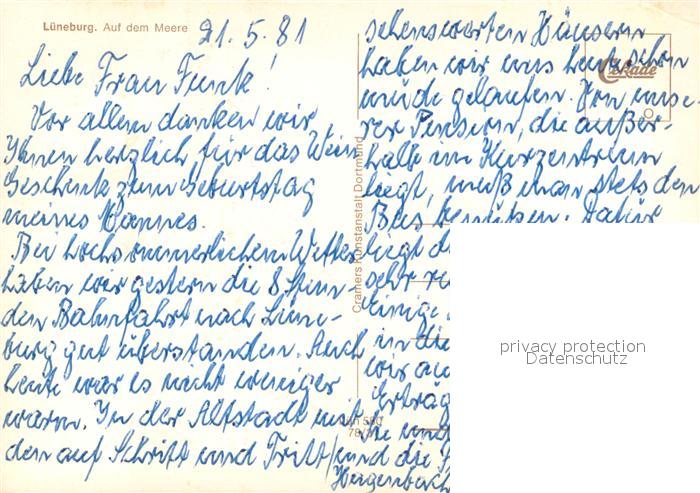 Lüneburg. Auf dem Meere
21.5.81
Liebe Frau Funk!
Vor allem danken wir
Ihnen herzlich für das Wein
Geschenk zum Geburtstag
meines Mannes.
Bei hochsommerlichem Wetter
haben wir gestern die 8 Stun-
den Bahnfahrt nach Lüne-
burg gut überstanden. Auch
heute war es nicht weniger
warm. In der Altstadt mit
den auf Schritt und Tritt
sehenswerten Häusern
haben wir uns heute schon
müde gelaufen. Von unse-
rer Pension, die außer-
halb im Kurzentrum
liegt, muß man stets den
Bus benützen. Dafür
liegt
sehr
Einige
in die
wir
und die
Hagenbach
Cramers Kunstanstalt Dortmund
Cekade
privacy protection
Datenschutz